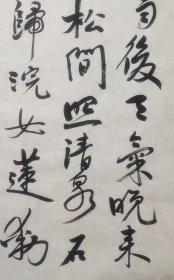 雨後天氣晚来
松間照清泉石
歸浣女蓮動